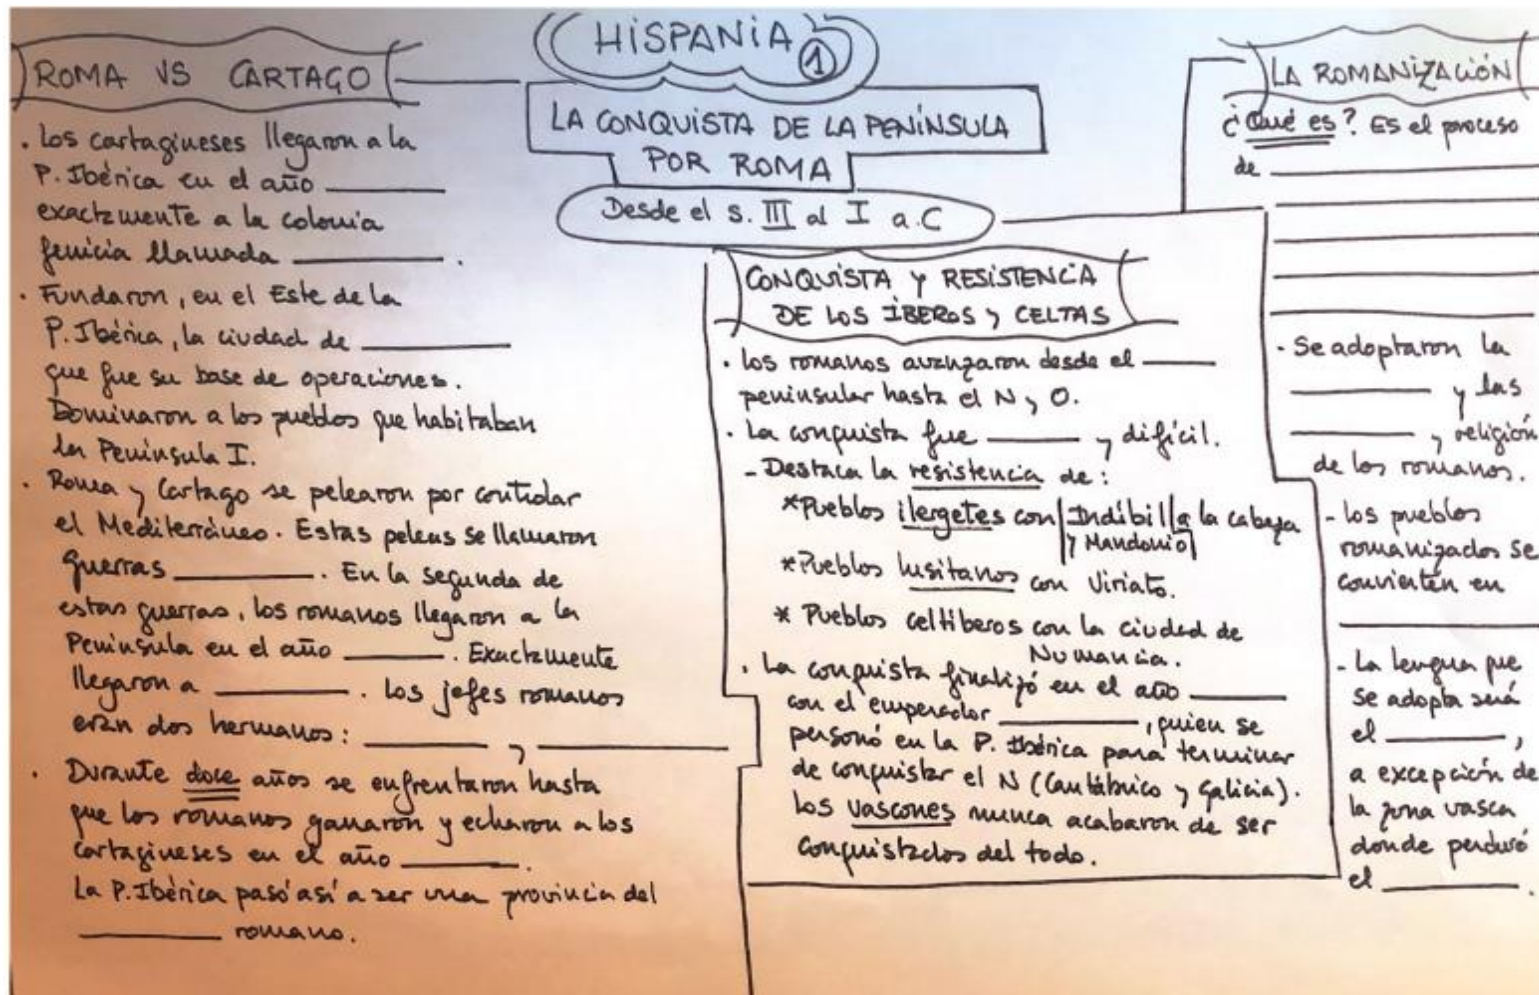 HISPANIA 1
LA CONQUISTA DE LA PENÍNSULA
POR ROMA
Desde el s. III al I a.C
ROMA VS CARTAGO
. Los cartagineses llegaron a la
P. Ibérica en el año ________
exactamente a la colonia
fenicia llamada ________.
. Fundaron, en el Este de la
P. Ibérica, la ciudad de ________
que fue su base de operaciones.
Dominaron a los pueblos que habitaban
la Península I.
. Roma y Cartago se pelearon por controlar
el Mediterráneo. Estas peleas se llamaron
guerras ________. En la segunda de
estas guerras, los romanos llegaron a la
Península en el año ________. Exactamente
llegaron a ________. Los jefes romanos
eran dos hermanos: ________ y ________
. Durante doce años se enfrentaron hasta
que los romanos ganaron y echaron a los
cartagineses en el año ________.
La P. Ibérica pasó así a ser una provincia del
________ romano.
CONQUISTA Y RESISTENCIA
DE LOS ÍBEROS y CELTAS
. Los romanos avanzaron desde el ________
peninsular hasta el N y O.
. La conquista fue ________ y difícil.
- Destaca la resistencia de:
*Pueblos ilergetes con Indíbil a la cabeza
y Mandonio
*Pueblos lusitanos con Viriato.
* Pueblos celtíberos con la ciudad de
Numancia.
. La conquista finalizó en el año ________
con el emperador ________, quien se
personó en la P. Ibérica para terminar
de conquistar el N (Cantábrico y Galicia).
Los vascones nunca acabaron de ser
conquistados del todo.
LA ROMANIZACIÓN
¿Qué es? Es el proceso
de ________
- Se adoptaron la
________ y las
________ y religión
de los romanos.
- Los pueblos
romanizados se
convierten en
________
- La lengua que
se adopta será
el ________,
a excepción de
la zona vasca
donde perduró
el ________.